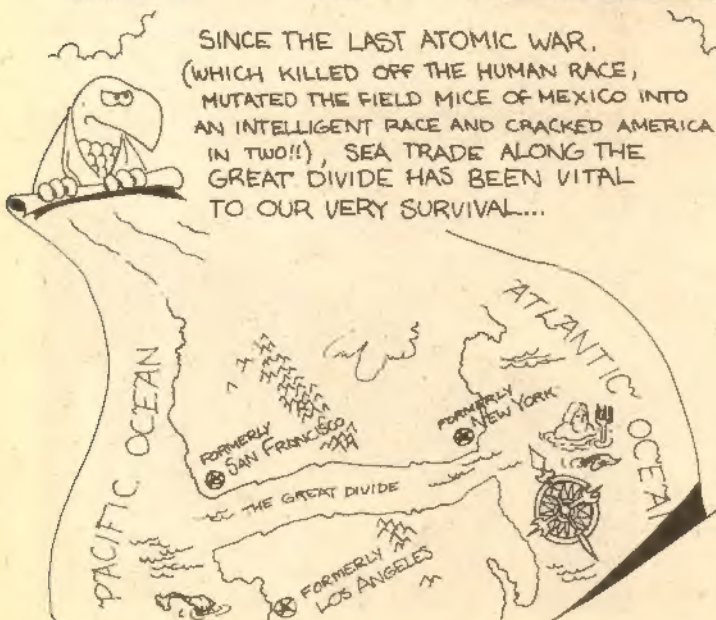 SINCE THE LAST ATOMIC WAR,
(WHICH KILLED OFF THE HUMAN RACE,
MUTATED THE FIELD MICE OF MEXICO INTO
AN INTELLIGENT RACE AND CRACKED AMERICA
IN TWO!!), SEA TRADE ALONG THE
GREAT DIVIDE HAS BEEN VITAL
TO OUR VERY SURVIVAL...
PACIFIC OCEAN
ATLANTIC OCEAN
FORMERLY
SAN FRANCISCO
FORMERLY
NEW YORK
THE GREAT DIVIDE
FORMERLY
LOS ANGELES